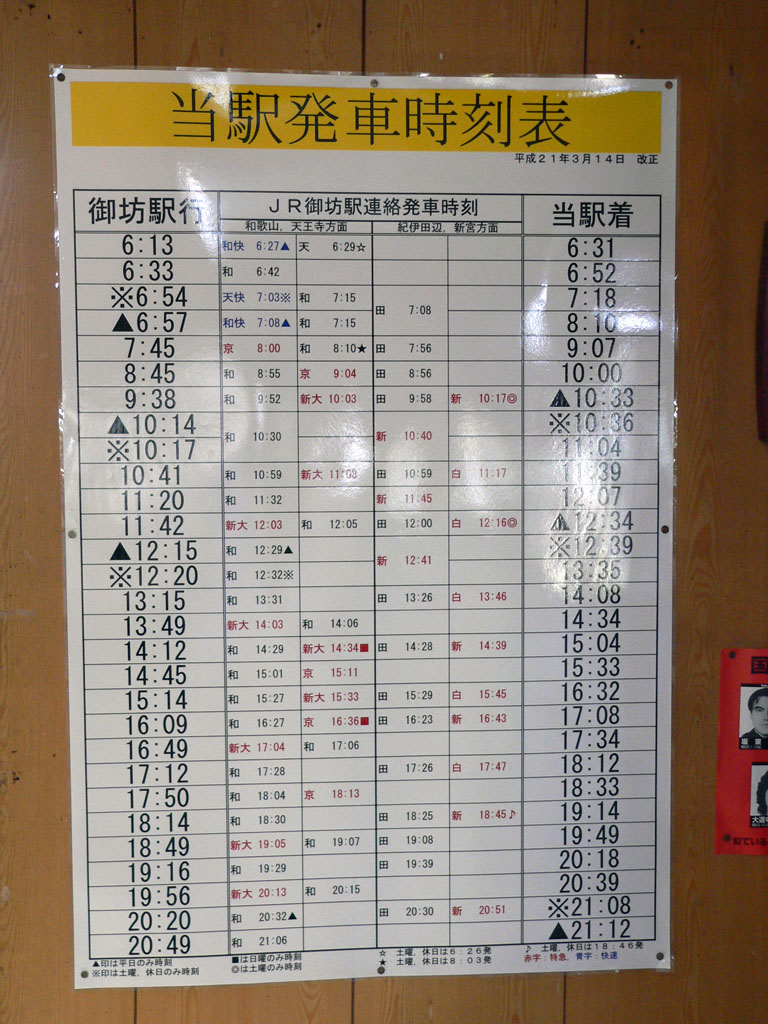 当駅発車時刻表
平成21年3月14日 改正
御坊駅行 JR御坊駅連絡発車時刻 当駅着
和歌山，天王寺方面 紀伊田辺，新宮方面
6:13 和快 6:27▲ 天 6:29☆ 6:31
6:33 和 6:42 6:52
※6:54 天快 7:03※ 和 7:15 田 7:08 7:18
▲6:57 和快 7:08▲ 和 7:15 8:10
7:45 京 8:00 和 8:10★ 田 7:56 9:07
8:45 和 8:55 京 9:04 田 8:56 10:00
9:38 和 9:52 新大 10:03 田 9:58 新 10:17◎ ▲10:33
▲10:14 和 10:30 新 10:40 ※10:36
※10:17 11:04
10:41 和 10:59 新大 11:03 田 10:59 白 11:17 11:39
11:20 和 11:32 新 11:45 12:07
11:42 新大 12:03 和 12:05 田 12:00 白 12:16◎ ▲12:34
▲12:15 和 12:29▲ 新 12:41 ※12:39
※12:20 和 12:32※ 13:35
13:15 和 13:31 田 13:26 白 13:46 14:08
13:49 新大 14:03 和 14:06 14:34
14:12 和 14:29 新大 14:34■ 田 14:28 新 14:39 15:04
14:45 和 15:01 京 15:11 15:33
15:14 和 15:27 新大 15:33 田 15:29 白 15:45 16:32
16:09 和 16:27 京 16:36■ 田 16:23 新 16:43 17:08
16:49 新大 17:04 和 17:06 17:34
17:12 和 17:28 田 17:26 白 17:47 18:12
17:50 和 18:04 京 18:13 18:33
18:14 和 18:30 田 18:25 新 18:45♪ 19:14
18:49 新大 19:05 和 19:07 田 19:08 19:49
19:16 和 19:29 田 19:39 20:18
19:56 新大 20:13 和 20:15 20:39
20:20 和 20:32▲ 田 20:30 新 20:51 ※21:08
20:49 和 21:06 ▲21:12
▲印は平日のみ時刻 ■は日曜のみ時刻 ☆ 土曜，休日は6：26発 ♪ 土曜，休日は18：46発
※印は土曜，休日のみ時刻 ◎は土曜のみ時刻 ★ 土曜，休日は8：03発 赤字：特急，青字：快速
似ている